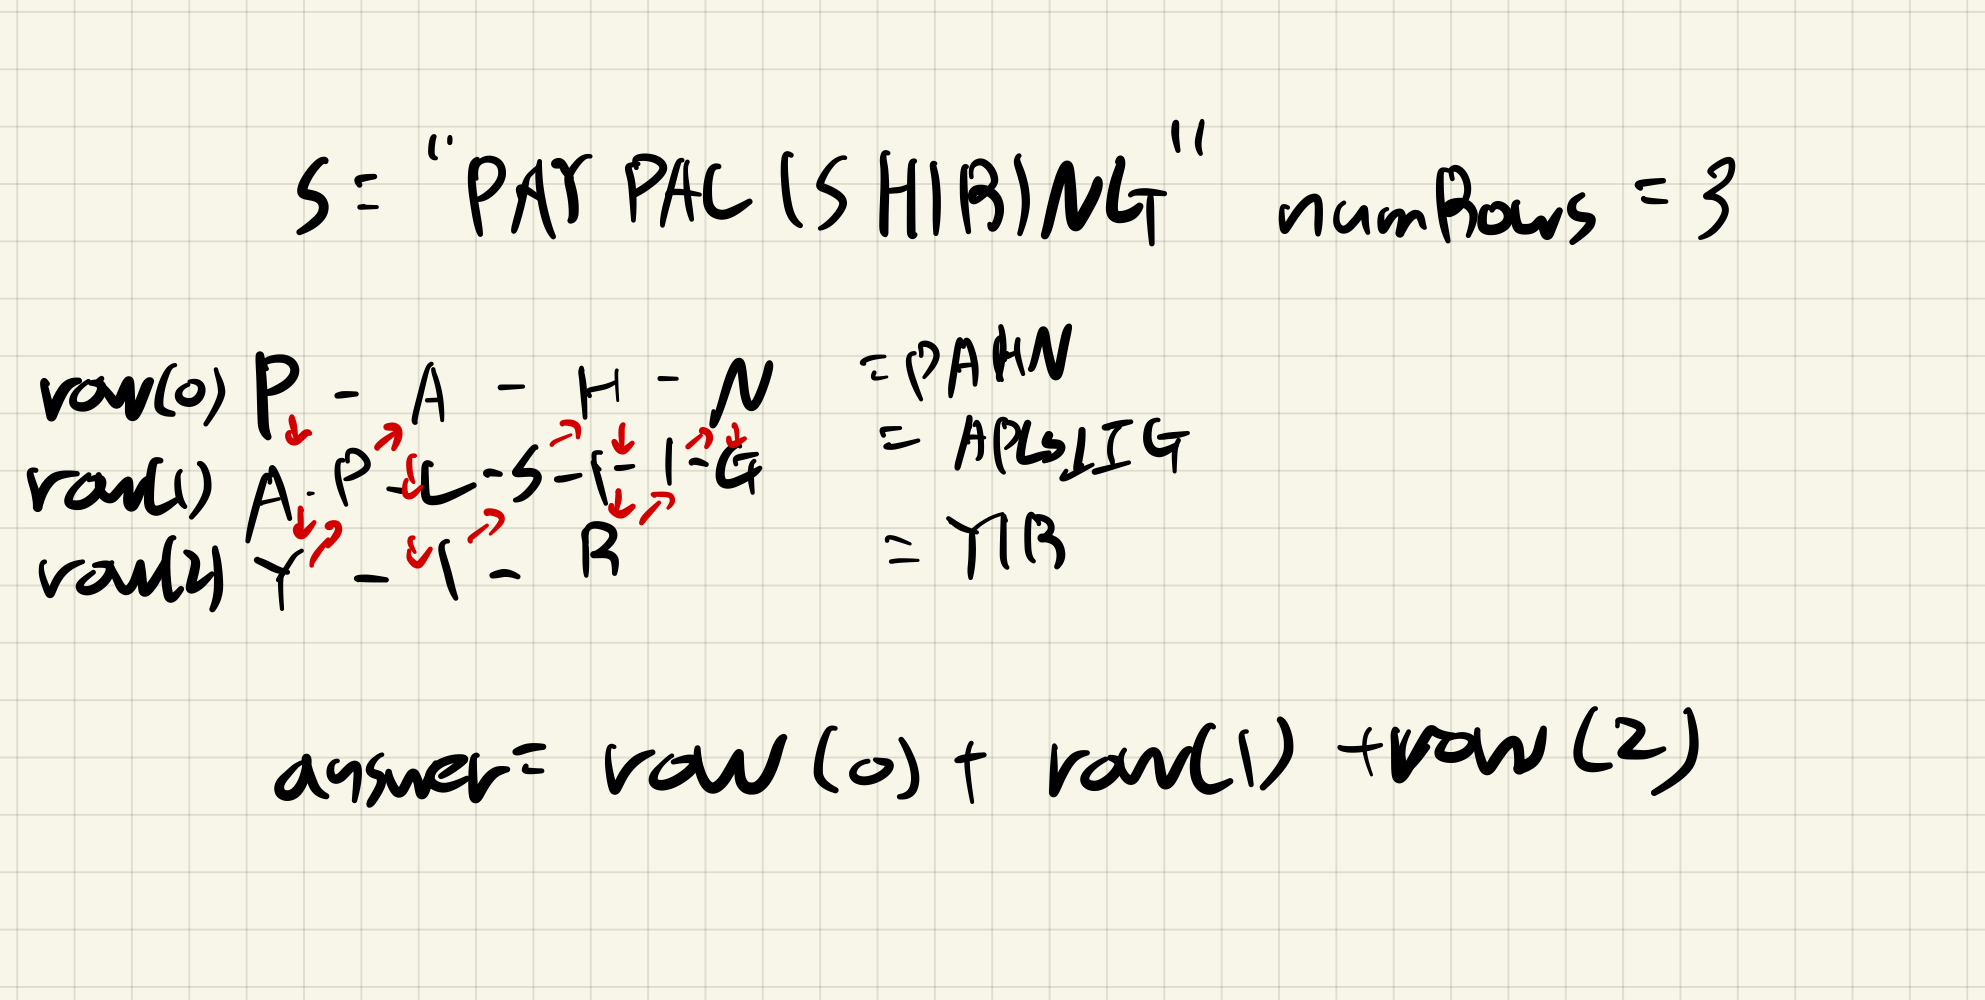 S = "PAYPALISHIRING" numRows = 3
row(0) P - A - H - N = PAHN
row(1) A - P - L - S - I - I - G = APLSIIG
row(2) Y - I - R = YIR
answer = row(0) + row(1) + row(2)